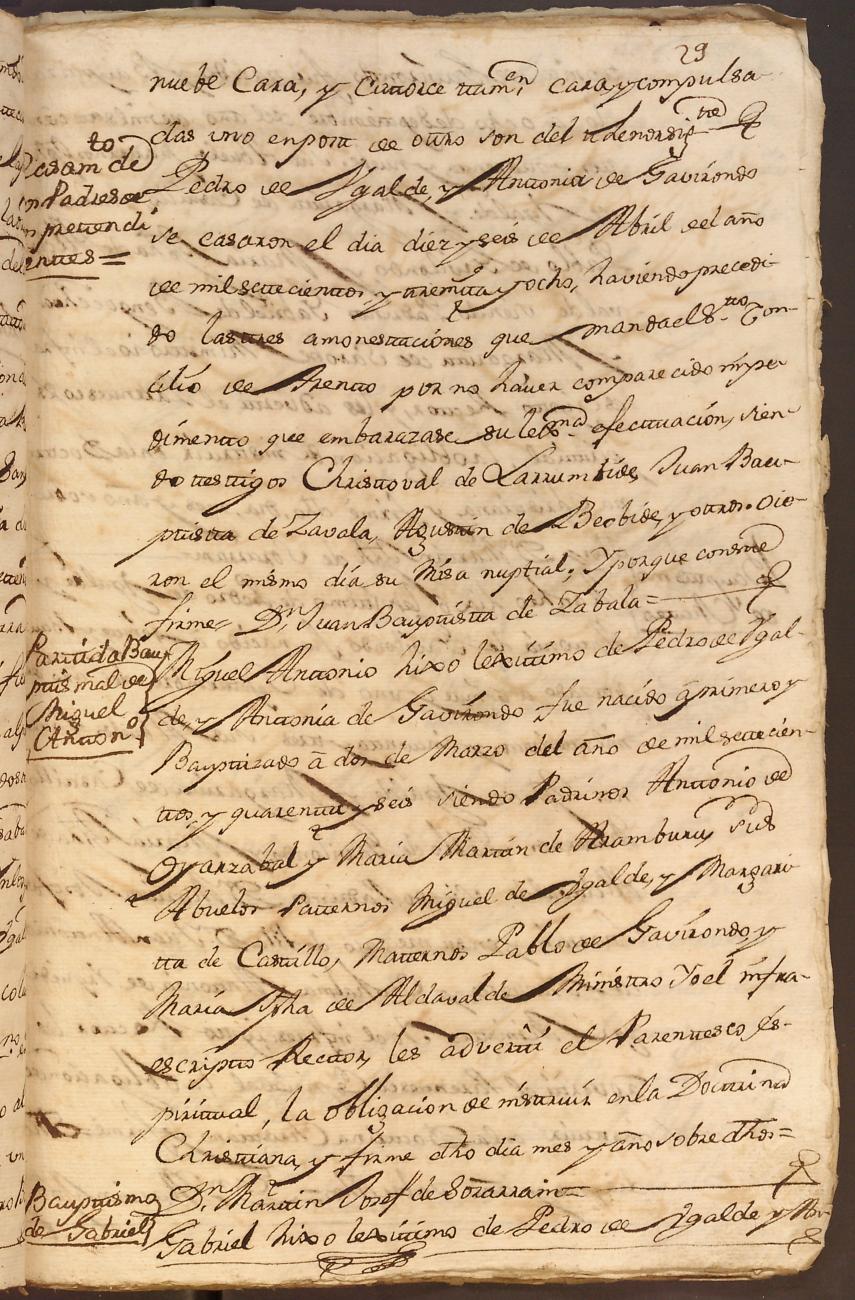 29
nuebe Cara, y Cattorce ttamen, cara y compulsa-
das uno en pott de ottro son del ttenor sigte
Casamto de
los Padres de
los pretendi
entes =
Pedro de Ygalde, y Antonia de Gavirondo
se casaron el dia diez y seis de Abril del año
de mil settecienttos, y ttreintta y ocho, haviendo precedi-
do las ttres amonesttaciones que manda el Stto Con-
cilio de Trentto por no haver comparecido impe-
dimentto que embarazase su lexma efecttuación, sien-
do ttesttigos Christtoval de Larrumbide, Juan Bau-
ptistta de Zavala, Agustin de Beobide, y ottros. oie-
ron el mismo día su Misa nuptial; Y porque constte
firme = Dn Juan Bauptistta de Zabala =
Parttida Bau
ptismal de
Miguel
Antonº
Miguel Antonio hixo lexittimo de Pedro de Ygal-
de, y Antonia de Gavirondo fue nacido á primero y
Bapttizado á dos de Marzo del año de mil settecien-
ttos, y quarentta y seis siendo Padrinos Anttonio de
Oyarzabal y María Marttin de Aramburu, sus
Abuelos Patternos Miguel de Ygalde, y Margari-
tta de Casttillo, Matternos Pablo de Gavirondo y
María Ypha de Aldavalde Ministtro Yo el infra-
escriptto Recttor, les adverttí el Parenttesco és-
pirittual, la obligacion de insttruir en la Docttrina
Christtiana, y firme dho dia mes y año sobre dhos =
Dn Marttin Josef de Sorarrain =
Bauptismo
de Gabriel
Gabriel hixo lexittimo de Pedro de Ygalde y An-